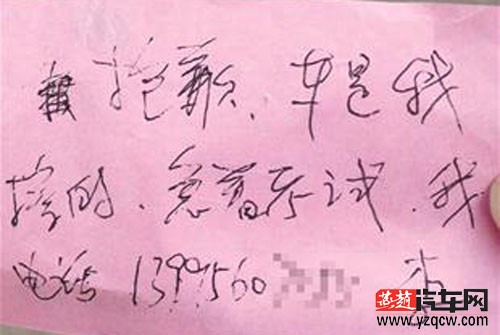 抱歉、车是我
撞的、急着考试、我
电话 1399560
燕赵汽车网
www.yzqcw.com